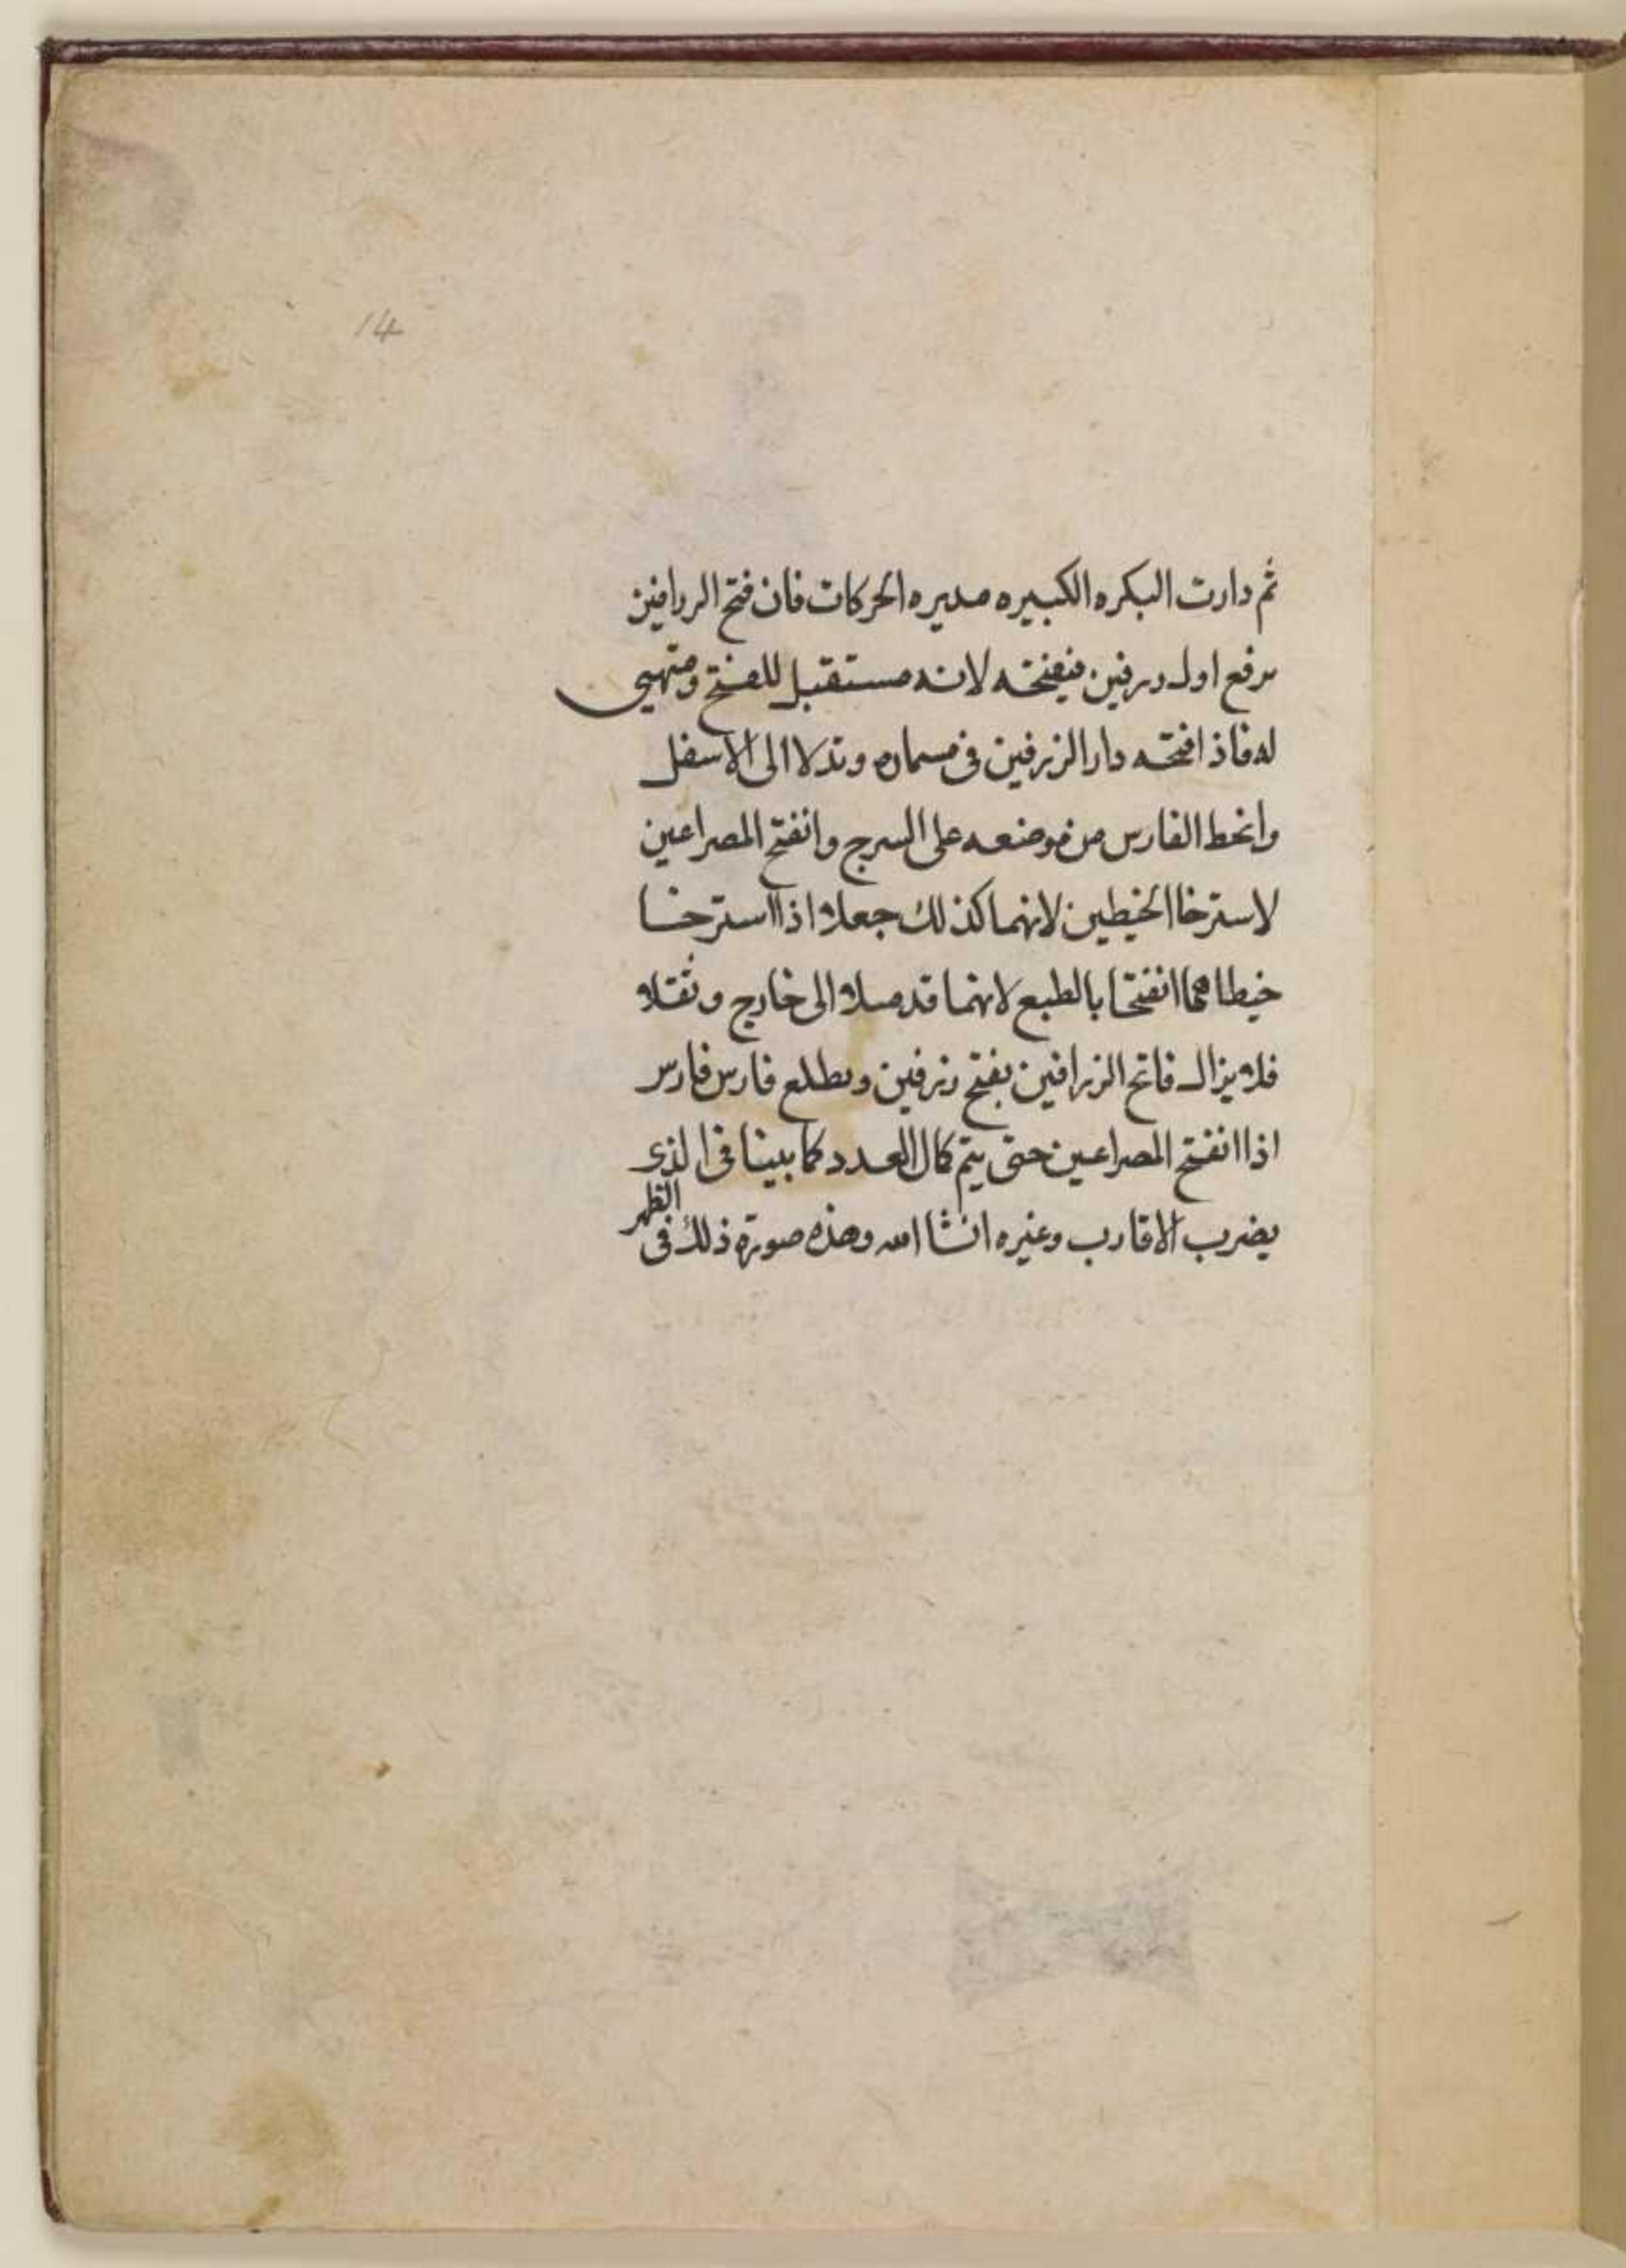 14
ثم دارت البكره الكبيره مديره الحركات فان فتح الررافين
برفع اول درفين فيفتحه لانه مستقبل للفتح ومتهيى
له فاذا فتحه دار الزرفين فى مسماره وتدلا الى الاسفل
وانحط الفارس من موضعه على السرج وانفتح المصراعين
لاسترخا الخيطين لانهما كذلك جعلا اذا استرخا
خيطاهما انفتحا بالطبع لانهما قد ميلا الى خارج وثقلا
فلا يزال فاتح الزرافين يفتح زرفين ويطلع فارس فارس
اذا انفتح المصراعين حتى يتم كمال العدد كما بينا فى الذى
يضرب الاقارب وغيره انشا الله وهذه صورة ذلك فى الظهر